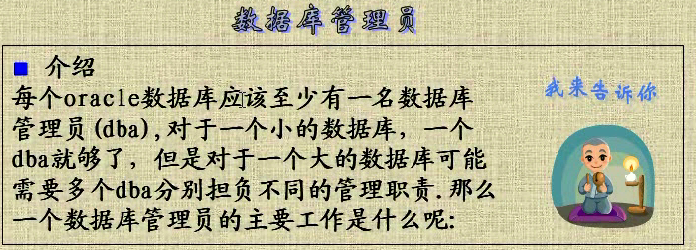 数据库管理员
介绍
每个oracle数据库应该至少有一名数据库
管理员(dba),对于一个小的数据库，一个
dba就够了，但是对于一个大的数据库可能
需要多个dba分别担负不同的管理职责.那么
一个数据库管理员的主要工作是什么呢:
我来告诉你